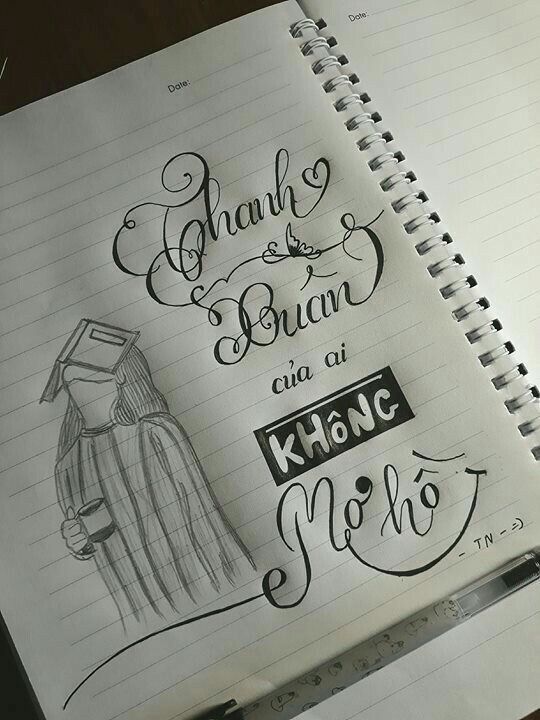 Date:
Date:
Thanh
Xuân
của ai
KHÔNG
Mơ hồ
- TN - =)